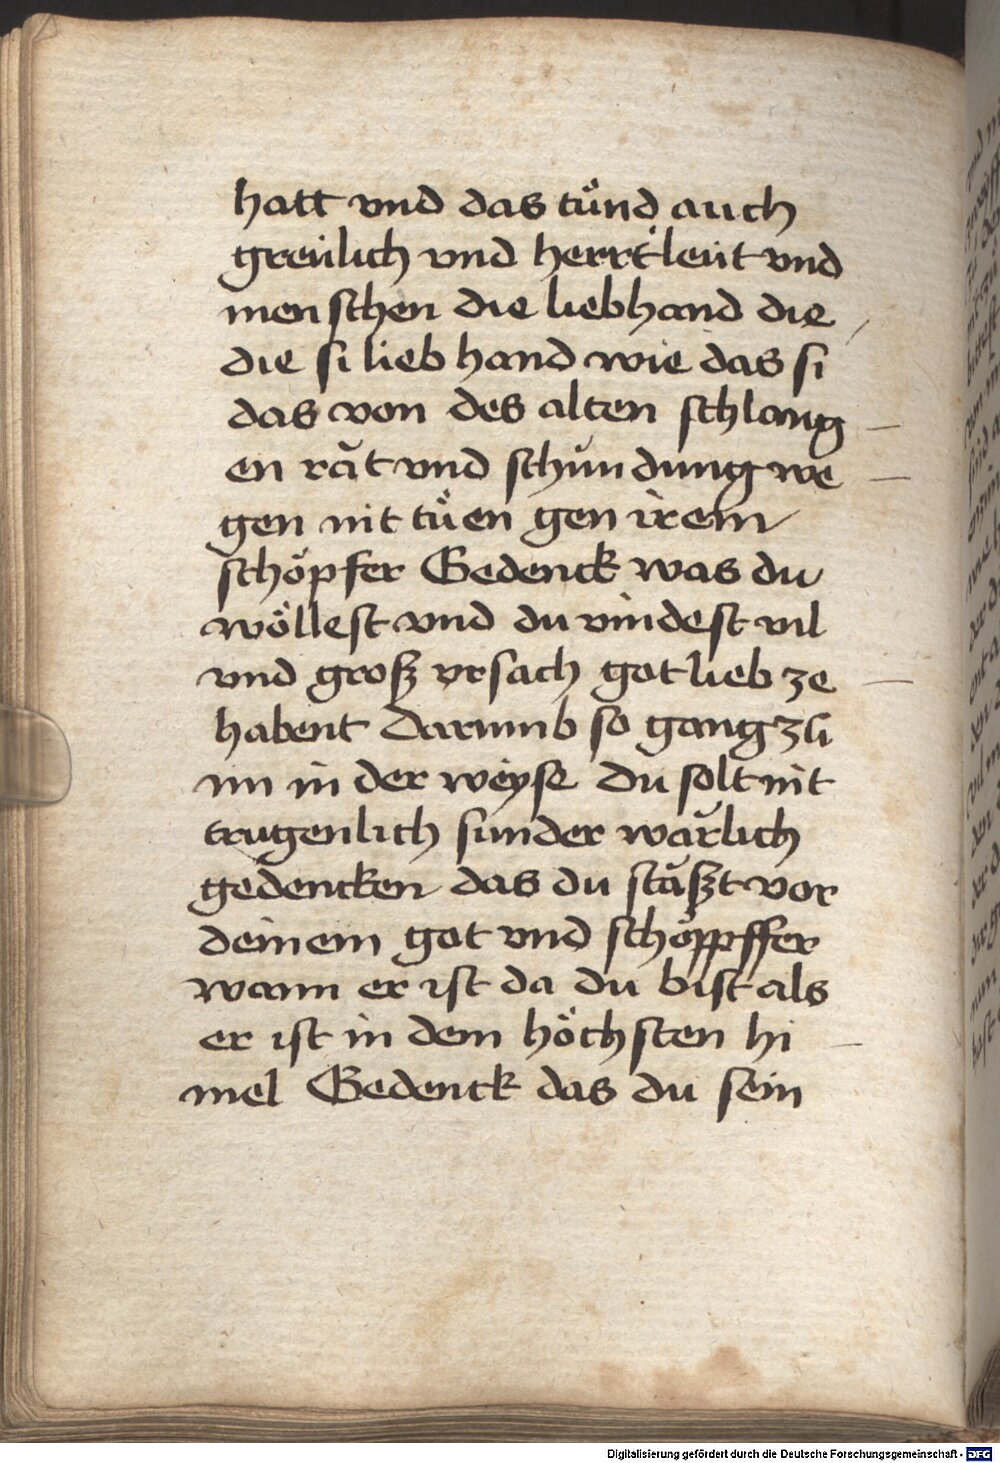 hatt vnd das tuͦnd auch
greülich vnd herrt leüt vnd
menschen die liebhand die
die si lieb hand wie das si
das von des alten schlang
en răt vnd schŭndung we
gen nit tuͦen gen irem
schöpfer Gedenck was du
wöllest vnd du vindest vil
vnd grosz vrsach got lieb ze
habent Darumb so gang zu
im in der weyse Du solt nit
trugenlich sunder wărlich
gedencken das du stăszt vor
deinem got vnd schöppffer
wann er ist da du bist als
er ist in dem höchsten hi
mel Gedenck das du sein
Digitalisierung gefördert durch die Deutsche Forschungsgemeinschaft - DFG